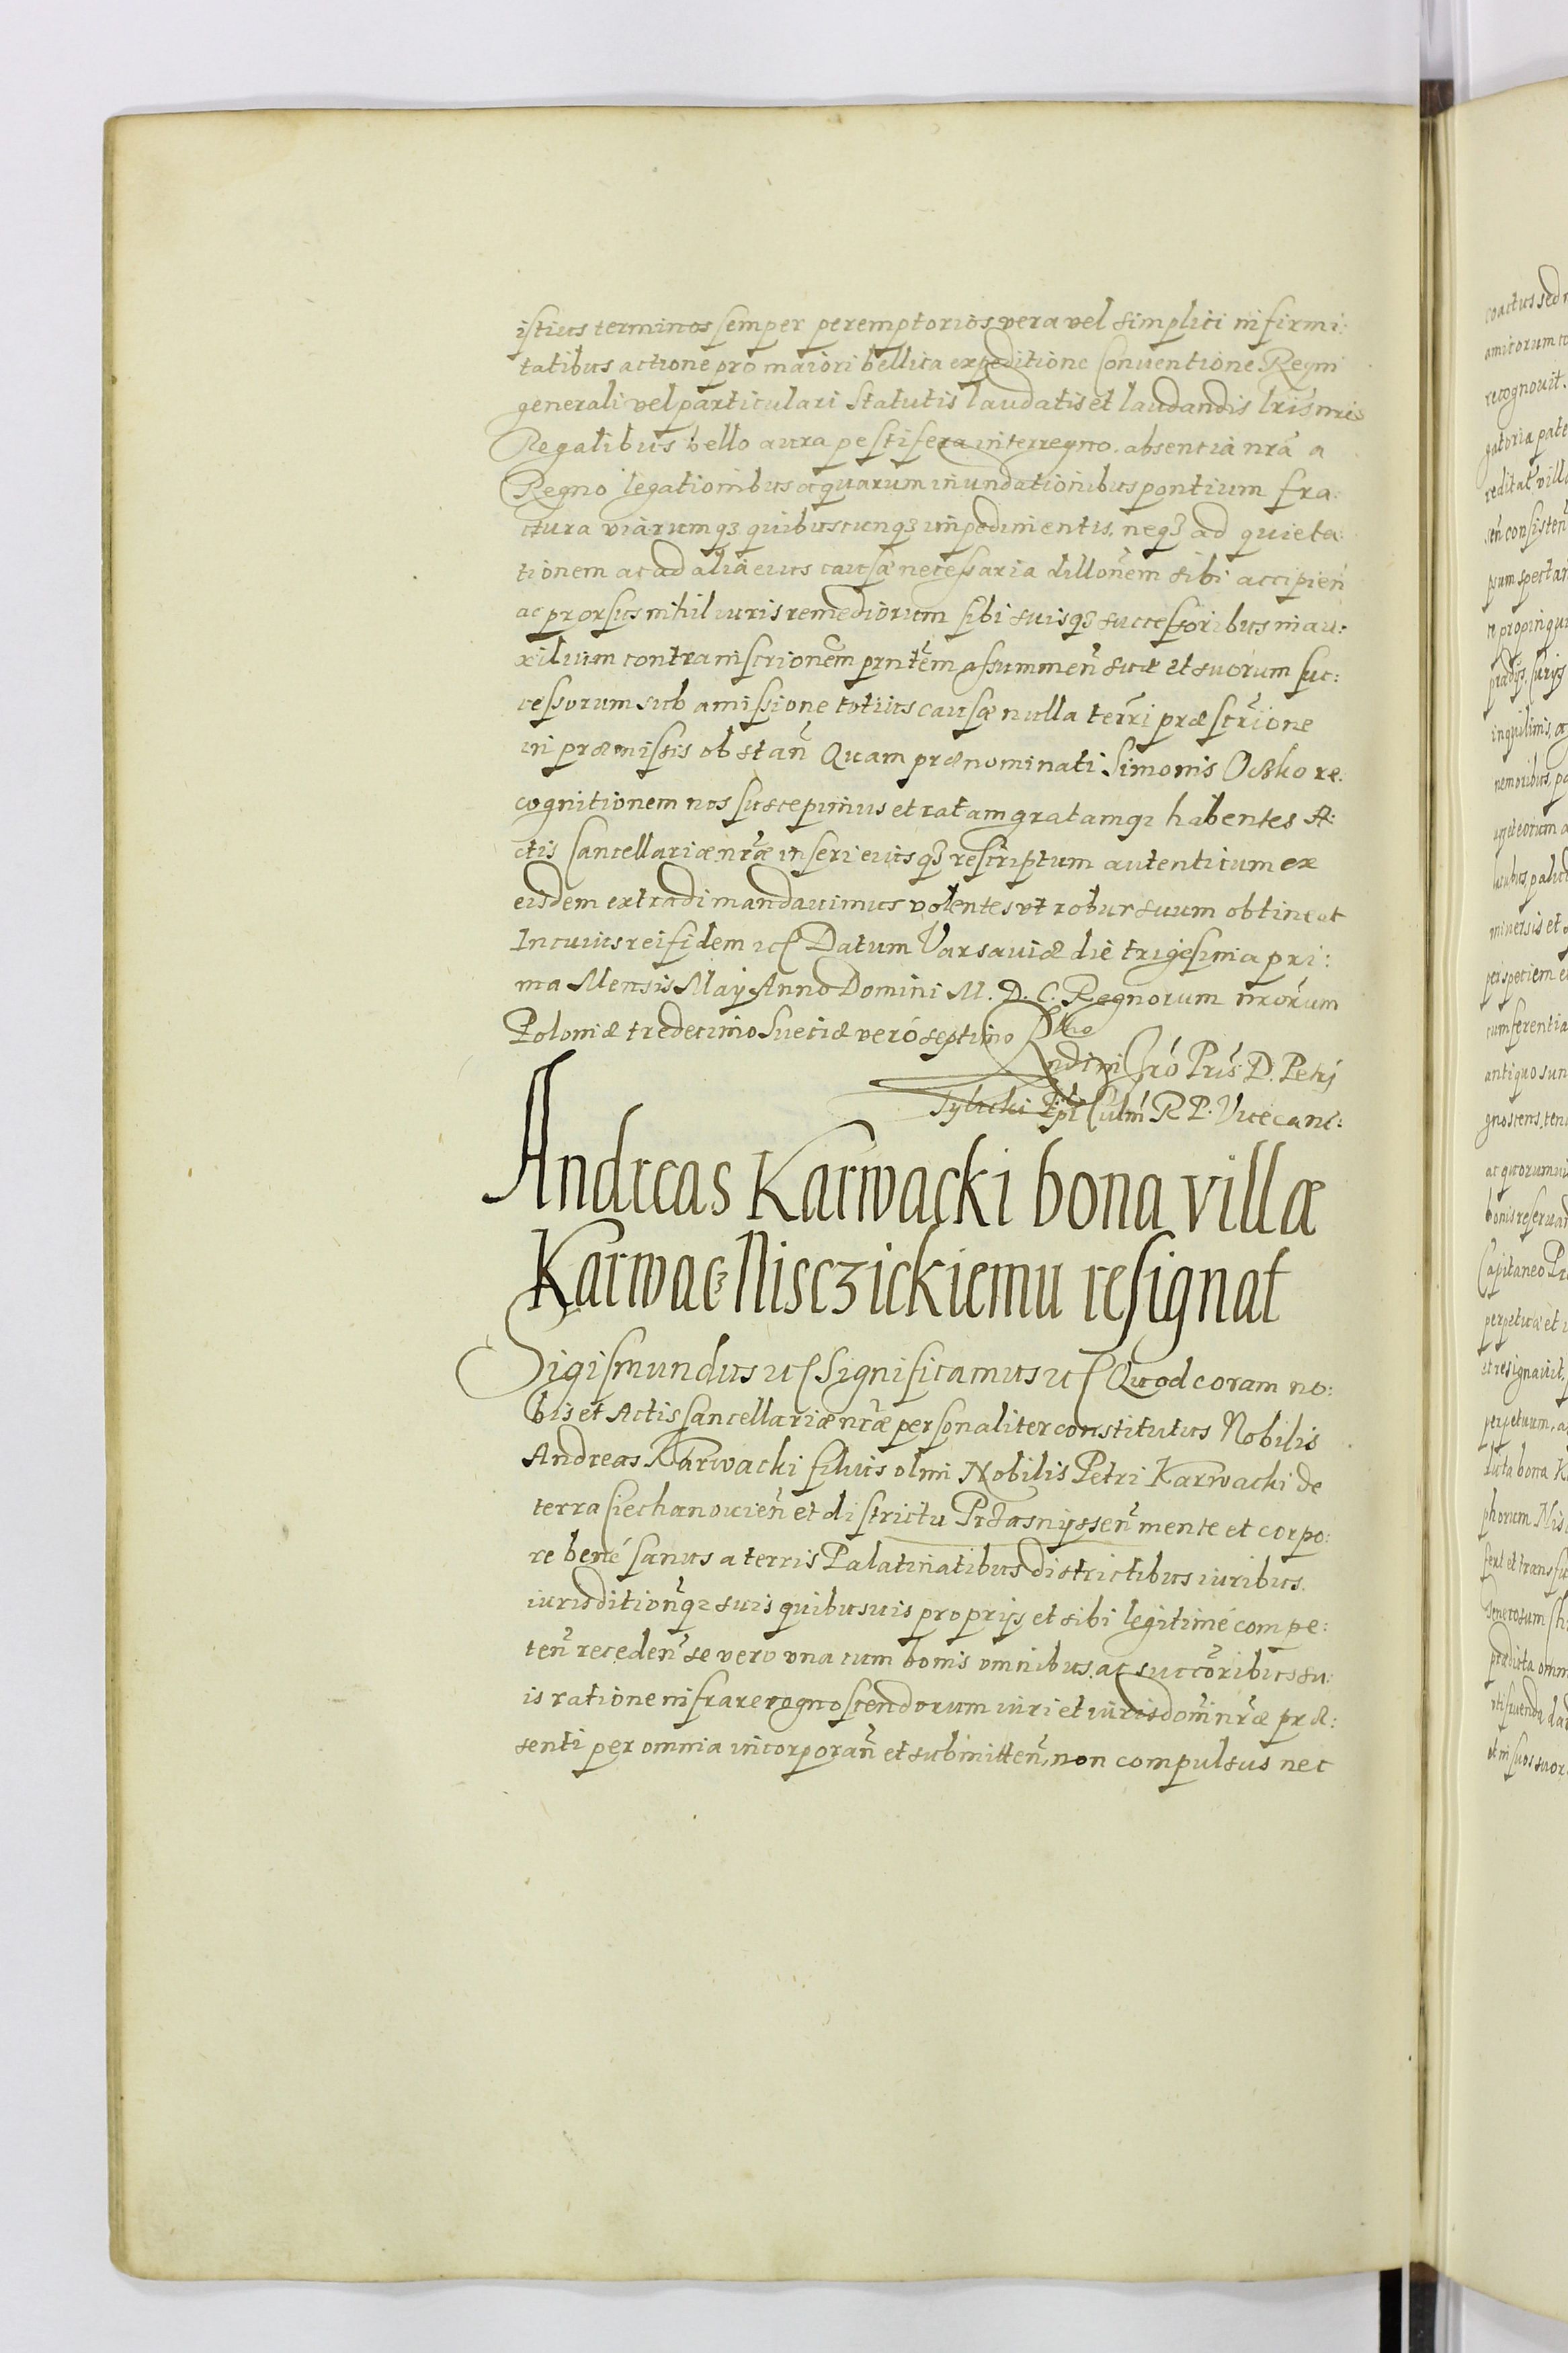 istius terminos semper peremptorios vera vel simplici infirmi:
tatibus actione pro maiori bellica expeditione Conventione Regni
generali vel particulari Statutis laudatis et laudandis lris nris
Regalibus bello aura pestifera interregno absentia nrã a
Regno legationibus aquarum inundationibus pontium fra:
ctura viarumq3 quibuscunq3 impedimentis, neq3 ad quieta:
tionem ac ad alia eius causæ necessaria dillonẽm sibi accipien̄
ac prorsus nihil iuris remediorum sibi suisq3 successoribus in au:
xilium contra inscrionẽm prntẽm assummen̄ suæ et suorum suc:
cessorum sub amissione totius causæ nulla terrĩ præscrĩone
in præmissis obstan̄ Quam prænominati Simonis Oczko re:
cognitionem nos suscepimus et ratam gratamq3 habentes A:
ctis Cancellariæ nræ̃ inseri eiusq3 rescriptum autenticum ex
eisdem extradi mandavimus volentes vt robur suum obtineat
In cuius rei fidem etc Datum Varsaviæ die trigesima pri:
ma Mensis Maÿ Anno Domini M. D. C. Regnorum nrorũm
Poloniæ tredecimo Sueciæ veró septimo Rlõ
Rndĩmi Chró Prĩs D. Petrj
Tylicki Epĩ Culm̃ R P. Vicecanc̃:
Andreas Karwacki bona villæ
Karwacz Nisczickiemu resignat
Sigismundus etc Significamus etc Quod coram no:
bis et Actis Cancellariæ nræ̃ personaliter constitutus Nobilis
Andreas Karwacki filius olmi Nobilis Petri Karwacki de
terra Ciechanovien̄ et districtu Przasnyssen̄ mente et corpo:
re bené sanus a terris Palatinatibus districtibus iuribus
iurisdition̄q3 suis quibusuis proprijs et sibi legitimé compe:
ten̄ receden̄ se vero vna cum bonis omnibus ac succõribus su:
is ratione infrarecognoscendorum iuri et iurisdomi nræ̃ præ:
senti per omnia incorporan̄ et submitten̄, non compulsus nec